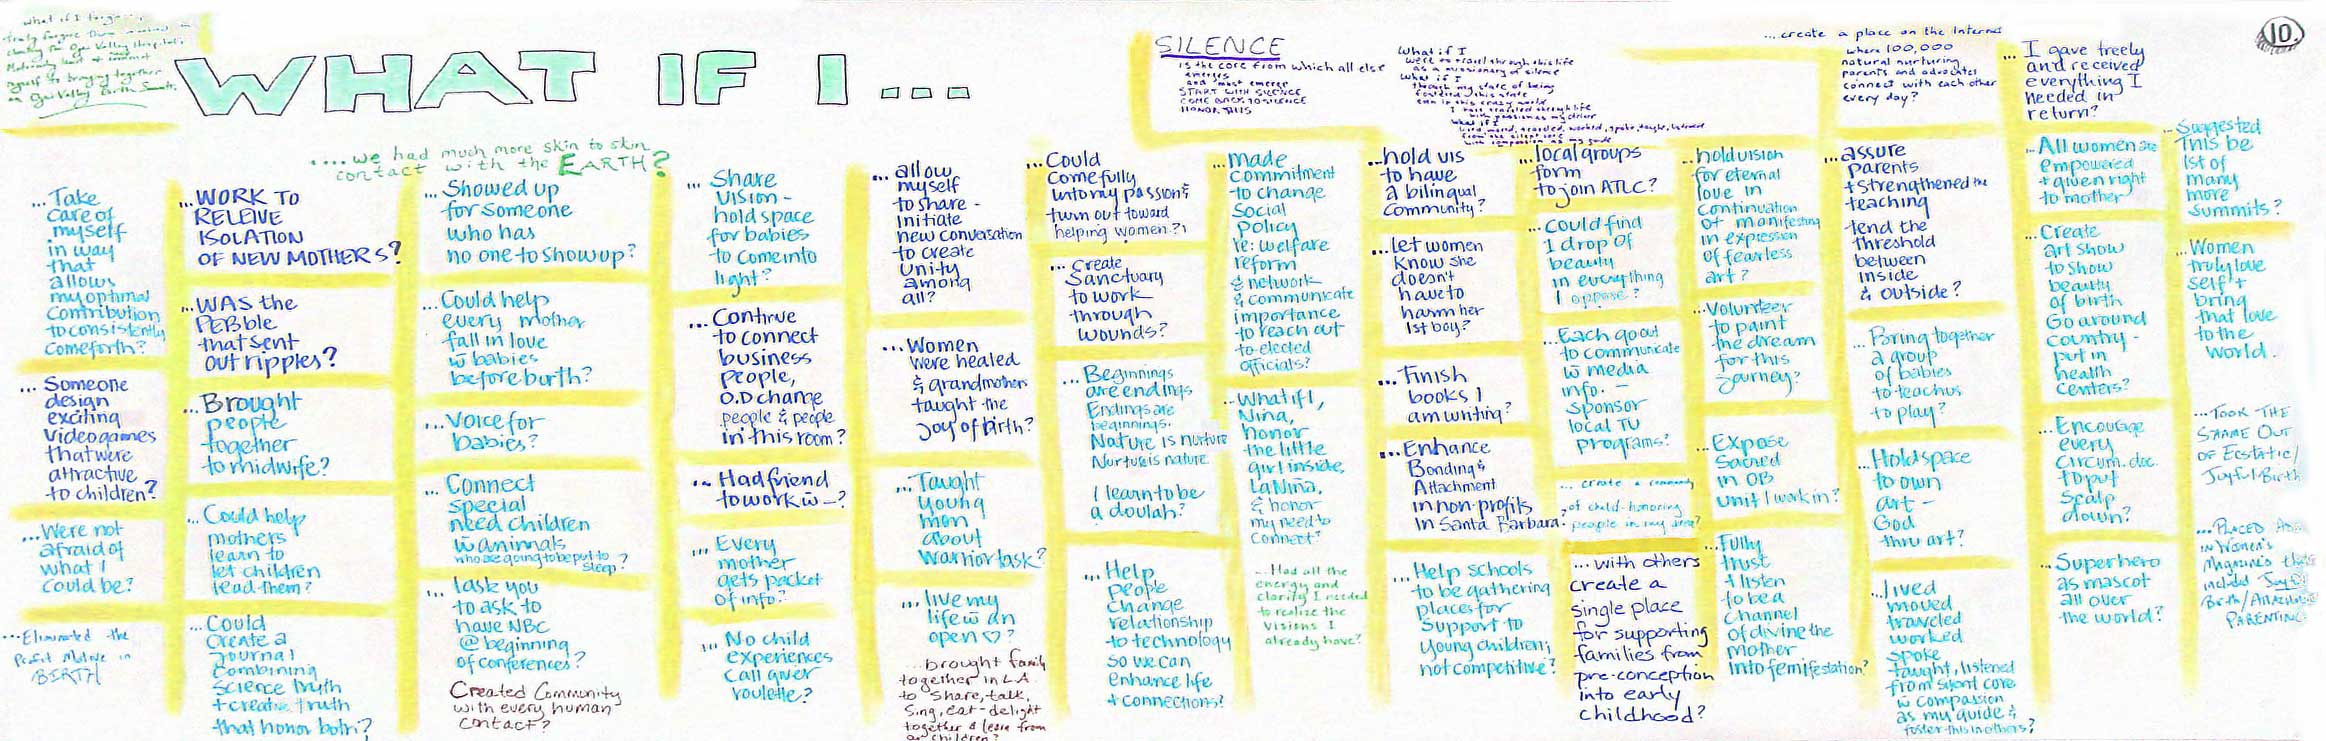 What if I forgave...
truly forgave
closing the Ojai Valley Hospital's
Maternity
myself to bringing together
an Ojai Valley Birth Summit.
WHAT IF I ...
.... we had much more skin to skin
contact with the EARTH?
SILENCE
is the core from which all else
emerges
and must emerge
START WITH SILENCE
COME BACK TO SILENCE
HONOR THIS
What if I
were to travel through this life
as a missionary of silence
What if I
through my state of being
fostered this state
even in this crazy world
I have traveled through life
with passion as my driver
What if I
lived, moved, traveled, worked, spoke, taught, listened
from the silent core
with compassion as my guide
...create a place on the Internet
where 100,000
natural nurturing
parents and advocates
connect with each other
every day?
... I gave freely
and received
everything I
needed in
return?
10.
...Take
care of
myself
in way
that
allows
my optimal
contribution
to consistently
come forth?
... Someone
design
exciting
Videogames
that were
attractive
to children?
...Were not
afraid of
what I
could be?
...Eliminated the
Profit Motive in
BIRTH
...WORK TO
RELEIVE
ISOLATION
OF NEW MOTHERS?
...WAS the
PEBble
that sent
out ripples?
...Brought
people
together
to midwife?
...Could help
mothers
learn to
let children
lead them?
...Could
Create a
Journal
Combining
Science truth
+ creative truth
that honor both?
...Showed up
for someone
who has
no one to show up?
...Could help
every mother
fall in love
w̄ babies
before birth?
...Voice for
babies?
... Connect
special
need children
w̄ animals
who are going to be put to
sleep?
... I ask you
to ask to
have NBC
@ beginning
of conferences?
Created Community
with every human
contact?
... Share
Vision -
hold space
for babies
to come into
light?
... Continue
to connect
business
people,
O.D change
people & people
in this room?
... Had friend
to work w̄ —?
... Every
mother
gets packet
of info?
... No child
experiences
Call giver
roulette?
... allow
myself
to share -
Initiate
new conversation
to create
Unity
among
all?
... Women
were healed
& grandmothers
taught the
Joy of birth?
...Taught
young
men
about
Warrior task?
...live my
life w̄ an
open ♡?
...brought family
together in L.A.
to share, talk,
Sing, eat - delight
together & learn from
children?
...Could
Come fully
unto my passion &
turn out toward
helping women?
... Create
Sanctuary
to work
through
wounds?
... Beginnings
are endings
Endings are
beginnings.
Nature is nurture
Nurture is nature
I learn to be
a doulah?
... Help
people
Change
relationship
to technology
so we can
enhance life
+ connections?
... made
commitment
to change
Social
policy
re: welfare
reform
& network
& communicate
importance
to reach out
to elected
officials?
...What if I,
Nina,
honor
the little
girl inside,
La Niña,
& honor
my need to
connect?
... Had all the
energy and
clarity I needed
to realize the
Visions I
already have?
...hold vis
to have
a bilingual
Community?
...Let women
know she
doesn't
have to
harm her
1st boy?
...Finish
books I
am writing?
...Enhance
Bonding &
Attachment
in non-profits
in Santa Barbara?
... Help schools
to be gathering
places for
Support to
young children;
not competitive?
...local groups
form
to join ATLC?
...Could find
1 drop of
beauty
in everything
I oppose?
...Each go out
to communicate
w̄ media
info. -
sponsor
local TV
programs?
... create a community
of child-honoring
people in my area?
... with others
create a
single place
for supporting
families from
pre-conception
into early
childhood?
...hold vision
for eternal
love in
continuation
of manifesting
in expression
of fearless
art?
...Volunteer
to paint
the dream
for this
Journey?
...Expose
Sacred
in OB
unit I work in?
...Fully
trust
+ listen
to be a
Channel
of divine the
mother
into femifestation?
...assure
parents
+ strengthened the
teaching
tend the
threshold
between
inside
& outside?
...Bring together
a group
of babies
to teach us
to play?
...Hold space
to own
art -
God
thru art?
...lived
moved
traveled
worked
spoke
taught, listened
from silent core
w̄ compassion
as my guide &
foster this in others?
...All women are
empowered
+ given right
to mother
... Create
art show
to show
beauty
of birth
Go around
country -
put in
health
centers?
...Encourage
every
Circum. doc.
to put
Scalp
down?
...Superhero
as mascot
all over
the world?
...Suggested
this be
1st of
many
more
Summits?
...Women
truly love
self +
bring
that love
to the
world.
...TOOK THE
SHAME OUT
OF Ecstatic/
Joyful Birth
...PLACED
in Women's
Magazines that
include Joyful
Birth/Attachment
PARENTING